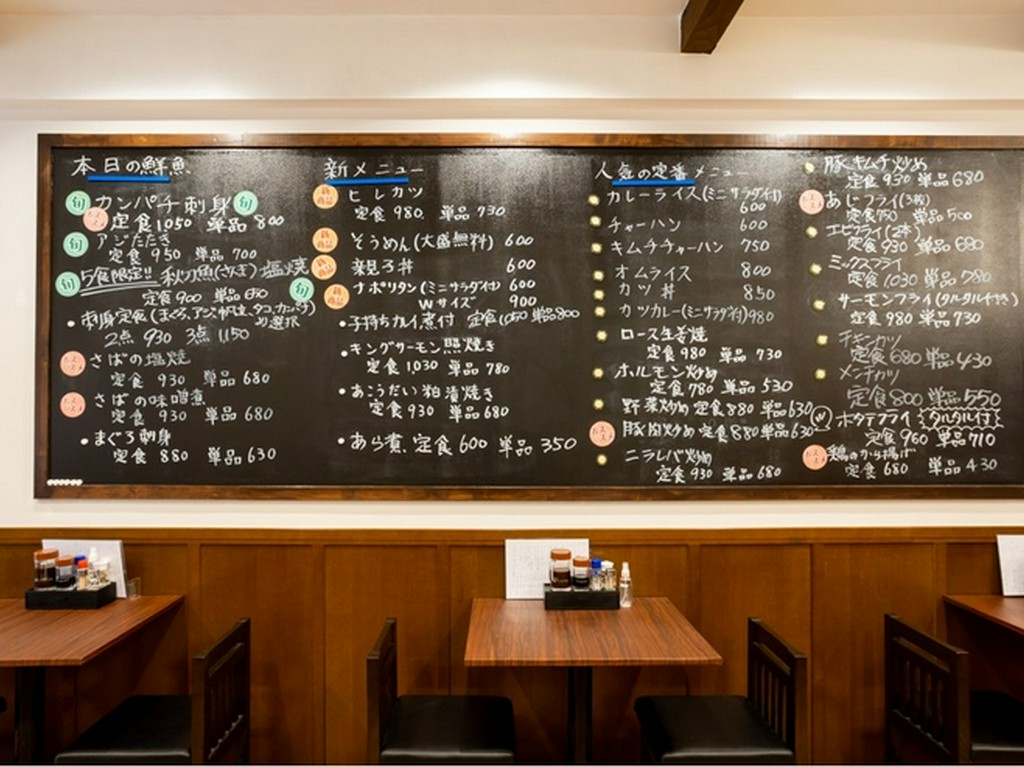 本日の鮮魚
旬 カンパチ刺身 旬
おススメ 定食1050 単品 800
旬 アジたたき
定食 950 単品 700
旬 5食限定!! 秋刀魚(さんま)塩焼
定食900 単品 850 旬
・刺身定食(まぐろ,アジ,帆立,タコ,カンパチ)
より選択
2点 930 3点 1,150
おススメ さばの塩焼
定食 930 単品 680
おススメ さばの味噌煮
定食 930 単品 680
・まぐろ刺身
定食 880 単品 630
新メニュー
新商品 ヒレカツ
定食 980. 単品 730
新商品 そうめん(大盛無料) 600
新商品 親子丼 600
新商品 ナポリタン(ミニサラダ付) 600
Wサイズ 900
・子持ちカレイ煮付 定食1,050 単品800
・キングサーモン照焼き
定食 1,030 単品 780
・あこうだい粕漬焼き
定食 930 単品 680
・あら煮. 定食 600 単品 350
人気の定番メニュー
カレーライス(ミニサラダ付)
600
チャーハン 600
キムチチャーハン 750
オムライス 800
カツ丼 850
カツカレー(ミニサラダ付)980
ロース生姜焼
定食 980 単品 730
ホルモン炒め
定食 780 単品 530
野菜炒め 定食 880 単品630
おススメ 豚肉炒め 定食880単品630
ニラレバ炒め
定食 930 単品 680
豚キムチ炒め
定食 930 単品 680
おススメ あじフライ(3枚)
定食750 単品 500
エビフライ(2本)
定食 930 単品 680
ミックスフライ
定食 1030 単品 780
サーモンフライ(タルタル付き)
定食 980 単品 730
チキンカツ
定食 680 単品 430
メンチカツ
定食 800 単品 550
ホタテフライ タルタル付
定食 960 単品 710
おススメ 鶏のから揚げ
定食 680 単品 430